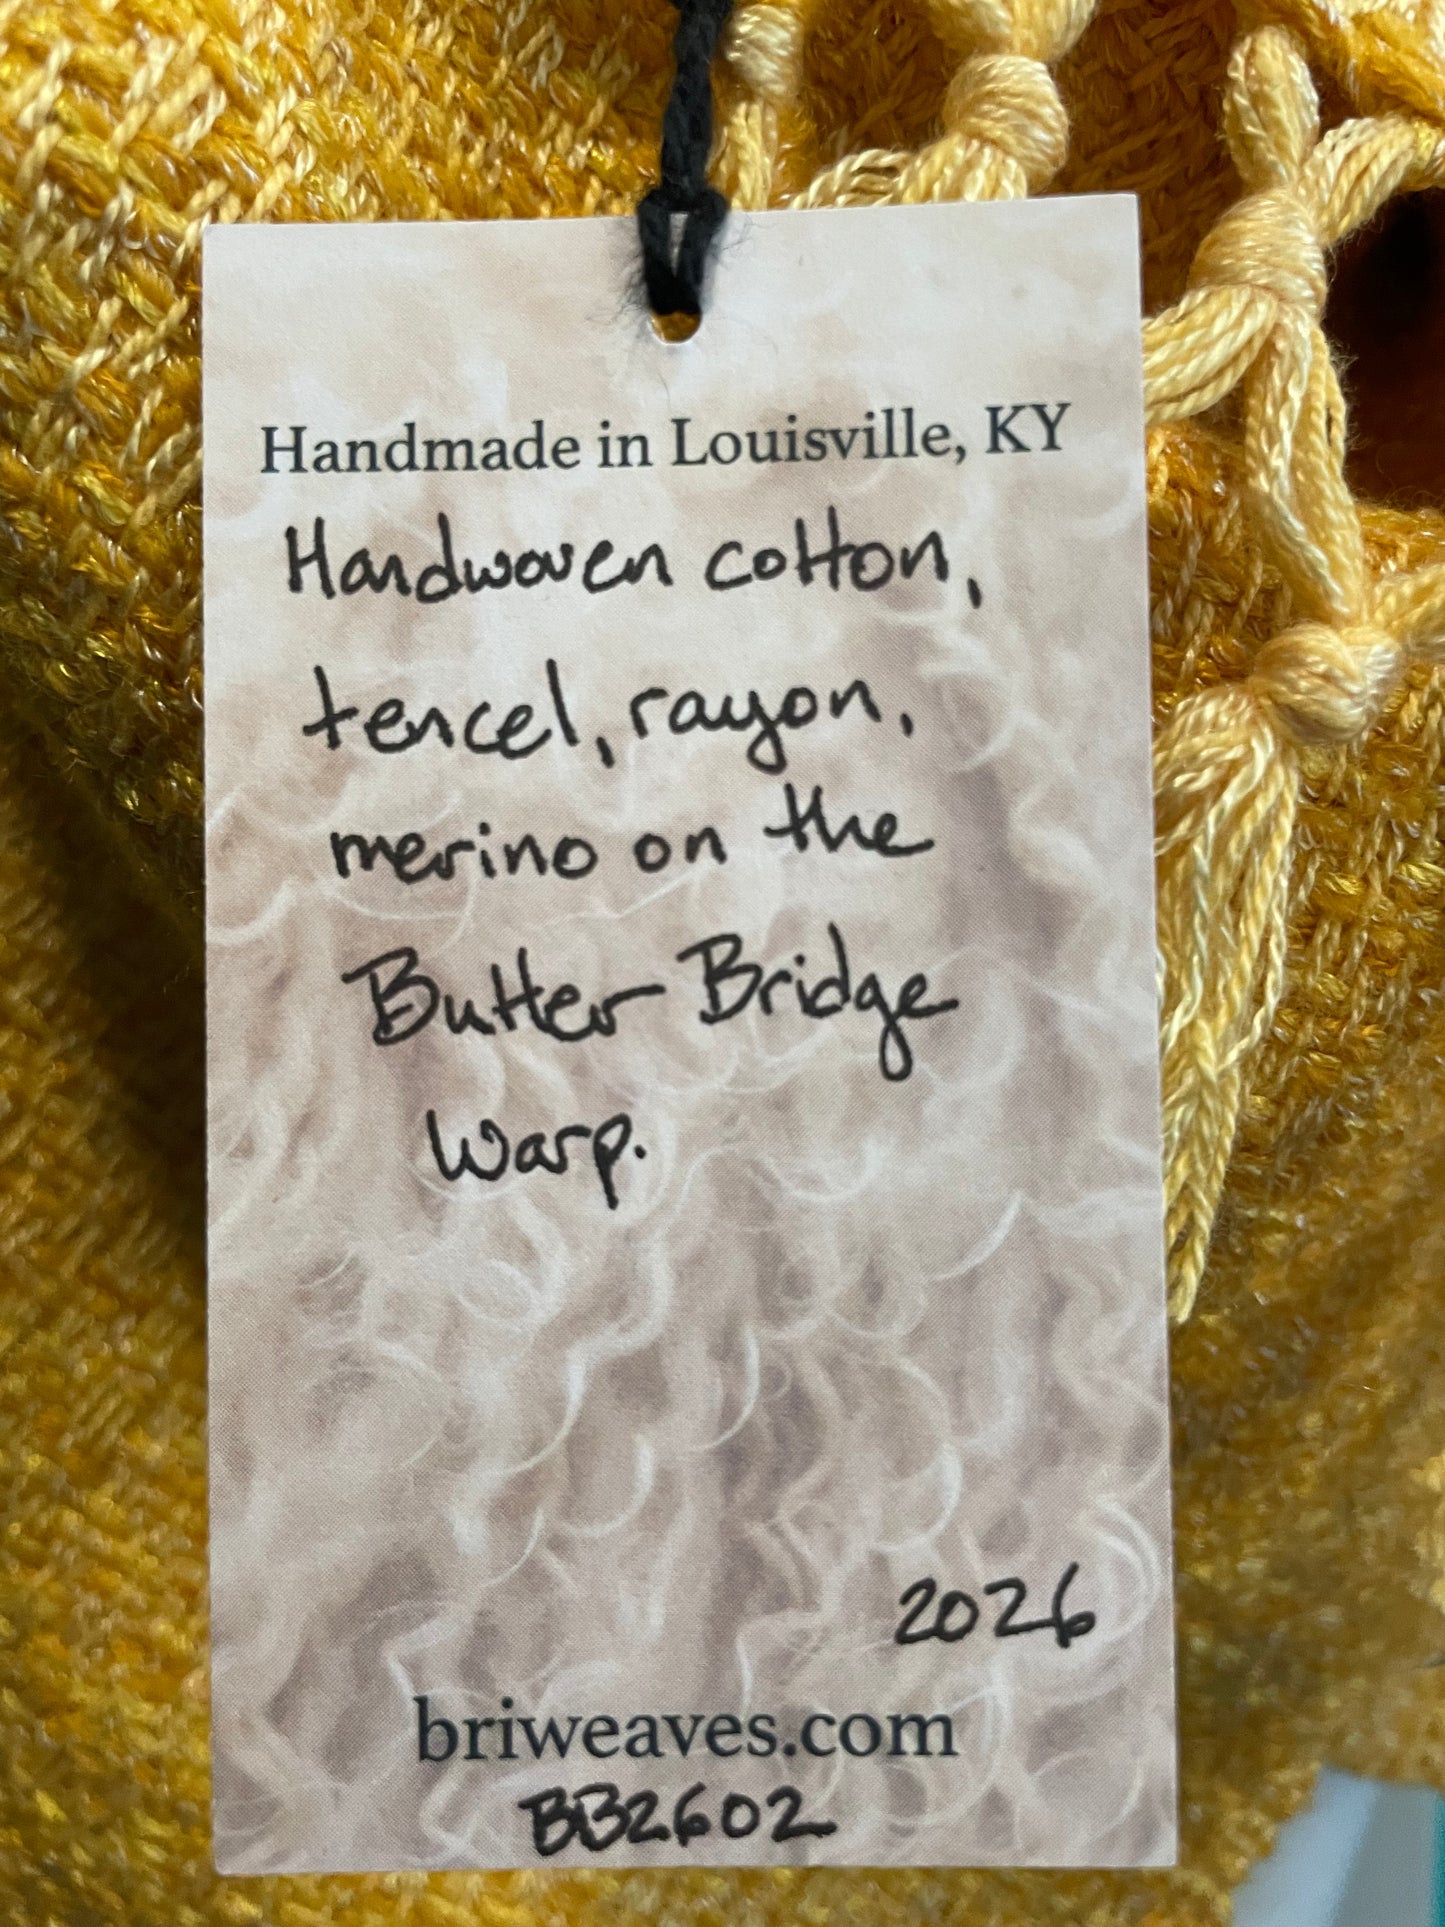 Handmade in Louisville, KY
Handwoven cotton,
tencel, rayon,
merino on the
Butter Bridge
warp.
2026
briweaves.com
BB2602